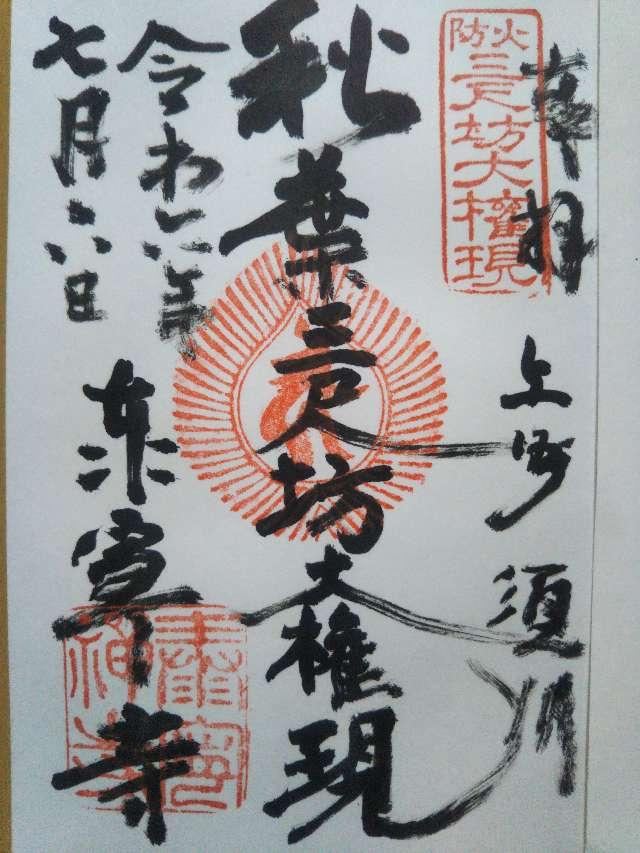 火防
三尺坊大權現
奉拝
上州須川
秋葉三尺坊大権現
令和六年
七月六日
泰寧寺